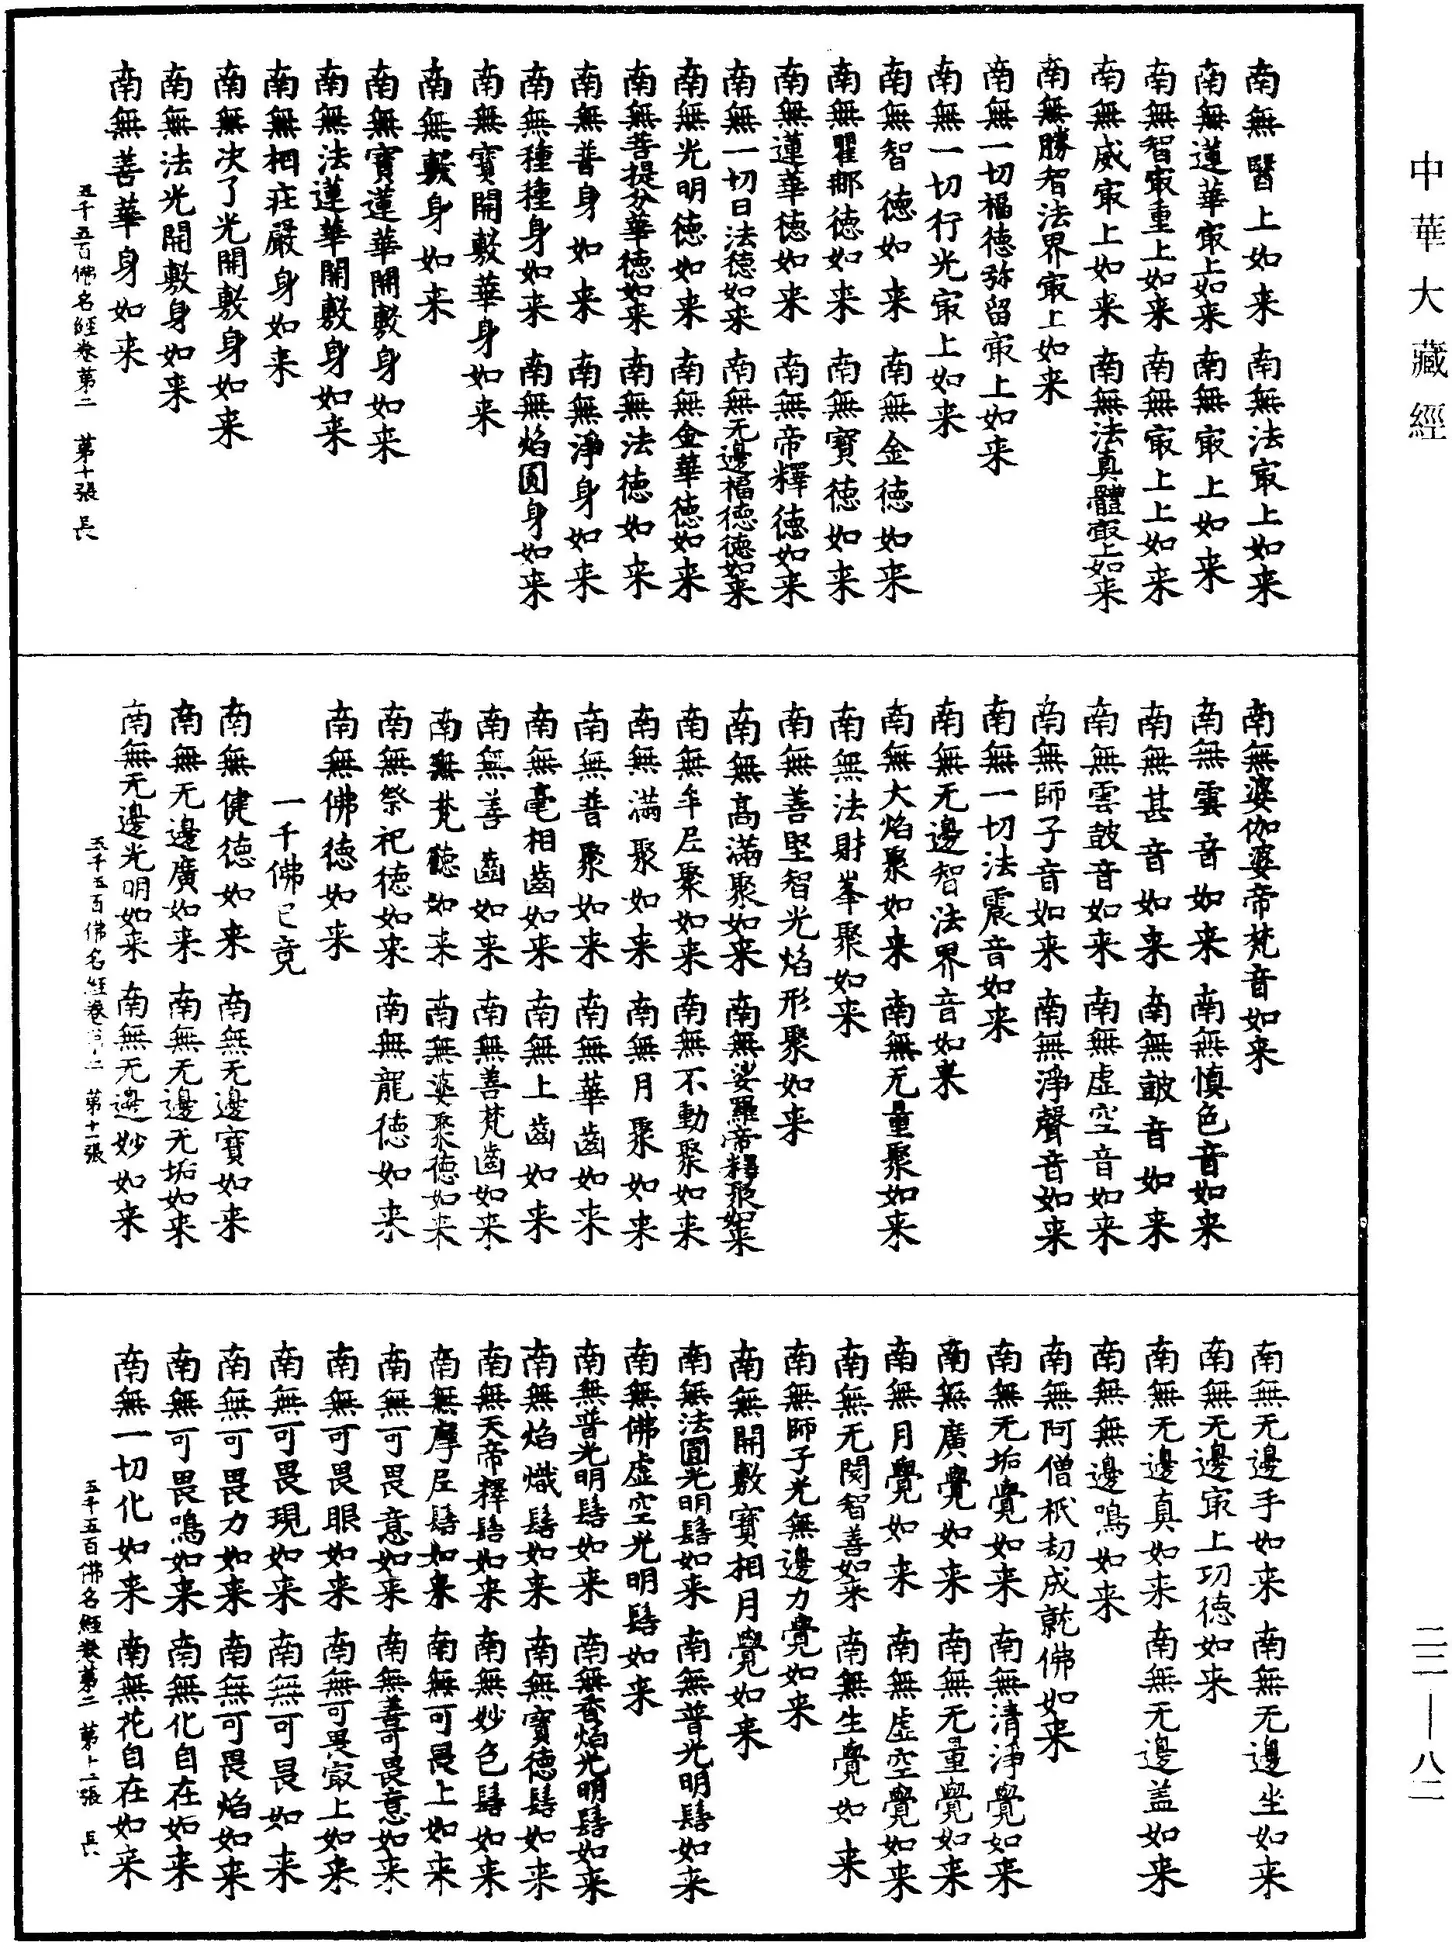 中華大藏經
南無醫上如来 南無法㝡上如来
南無蓮華㝡上如来 南無㝡上如来
南無智㝡重上如来 南無㝡上上如来
南無威㝡上如来 南無法真體㝡上如来
南無勝智法界㝡上如来
南無一切福徳弥留㝡上如来
南無一切行光㝡上如来
南無智徳如来 南無金徳如来
南無瞿那徳如来 南無寶徳如来
南無蓮華徳如来 南無帝釋徳如来
南無一切日法徳如来 南無无邊福徳徳如来
南無光明徳如来 南無金華徳如来
南無菩提分華徳如来 南無法徳如来
南無普身如来 南無淨身如来
南無種種身如来 南無焰圓身如来
南無寶開敷華身如来
南無敷身如来
南無寶蓮華開敷身如来
南無法蓮華開敷身如来
南無相莊嚴身如来
南無决了光開敷身如来
南無法光開敷身如来
南無善華身如来
五千五百佛名經卷第二 第十張 長
南無婆伽婆帝梵音如来
南無雲音如来 南無慎色音如来
南無甚音如来 南無皷音如来
南無雲皷音如来 南無虚空音如来
南無師子音如来 南無淨聲音如来
南無一切法震音如来
南無无邊智法界音如来
南無大焰聚如来 南無无量聚如来
南無法財峯聚如来
南無善堅智光焰形聚如来
南無髙滿聚如来 南無娑羅帝釋聚如来
南無牟尼聚如来 南無不動聚如来
南無滿聚如来 南無月聚如来
南無普聚如来 南無華齒如来
南無毫相齒如来 南無上齒如来
南無善齒如来 南無善梵齒如来
南無梵聽如来 南無婆聚徳如来
南無祭祀徳如来 南無龍徳如来
南無佛徳如来
一千佛已竟
南無健徳如来 南無无邊寶如来
南無无邊廣如来 南無无邊无垢如来
南無无邊光明如来 南無无邊妙如来
五千五百佛名經卷第二 第十一張
南無无邊手如来 南無无邊坐如来
南無无邊㝡上功徳如来
南無无邊真如来 南無无邊盖如来
南無無邊鳴如来
南無阿僧祇劫成就佛如来
南無无垢覺如来 南無清淨覺如来
南無廣覺如来 南無无量覺如来
南無月覺如来 南無虚空覺如来
南無无閡智善如来 南無生覺如来
南無師子光無邊力覺如来
南無開敷寶相月覺如来
南無法圓光明髻如来 南無普光明髻如来
南無佛虚空光明髻如来
南無普光明髻如来 南無香焰光明髻如来
南無焰熾髻如来 南無寶徳髻如来
南無天帝釋髻如来 南無妙色髻如来
南無摩尼髻如来 南無可畏上如来
南無可畏意如来 南無善可畏意如来
南無可畏眼如来 南無可畏㝡上如来
南無可畏現如来 南無可畏如来
南無可畏力如来 南無可畏焰如来
南無可畏鳴如来 南無化自在如来
南無一切化如来 南無花自在如来
五千五百佛名經卷第二 第十二張 長
二二——八二